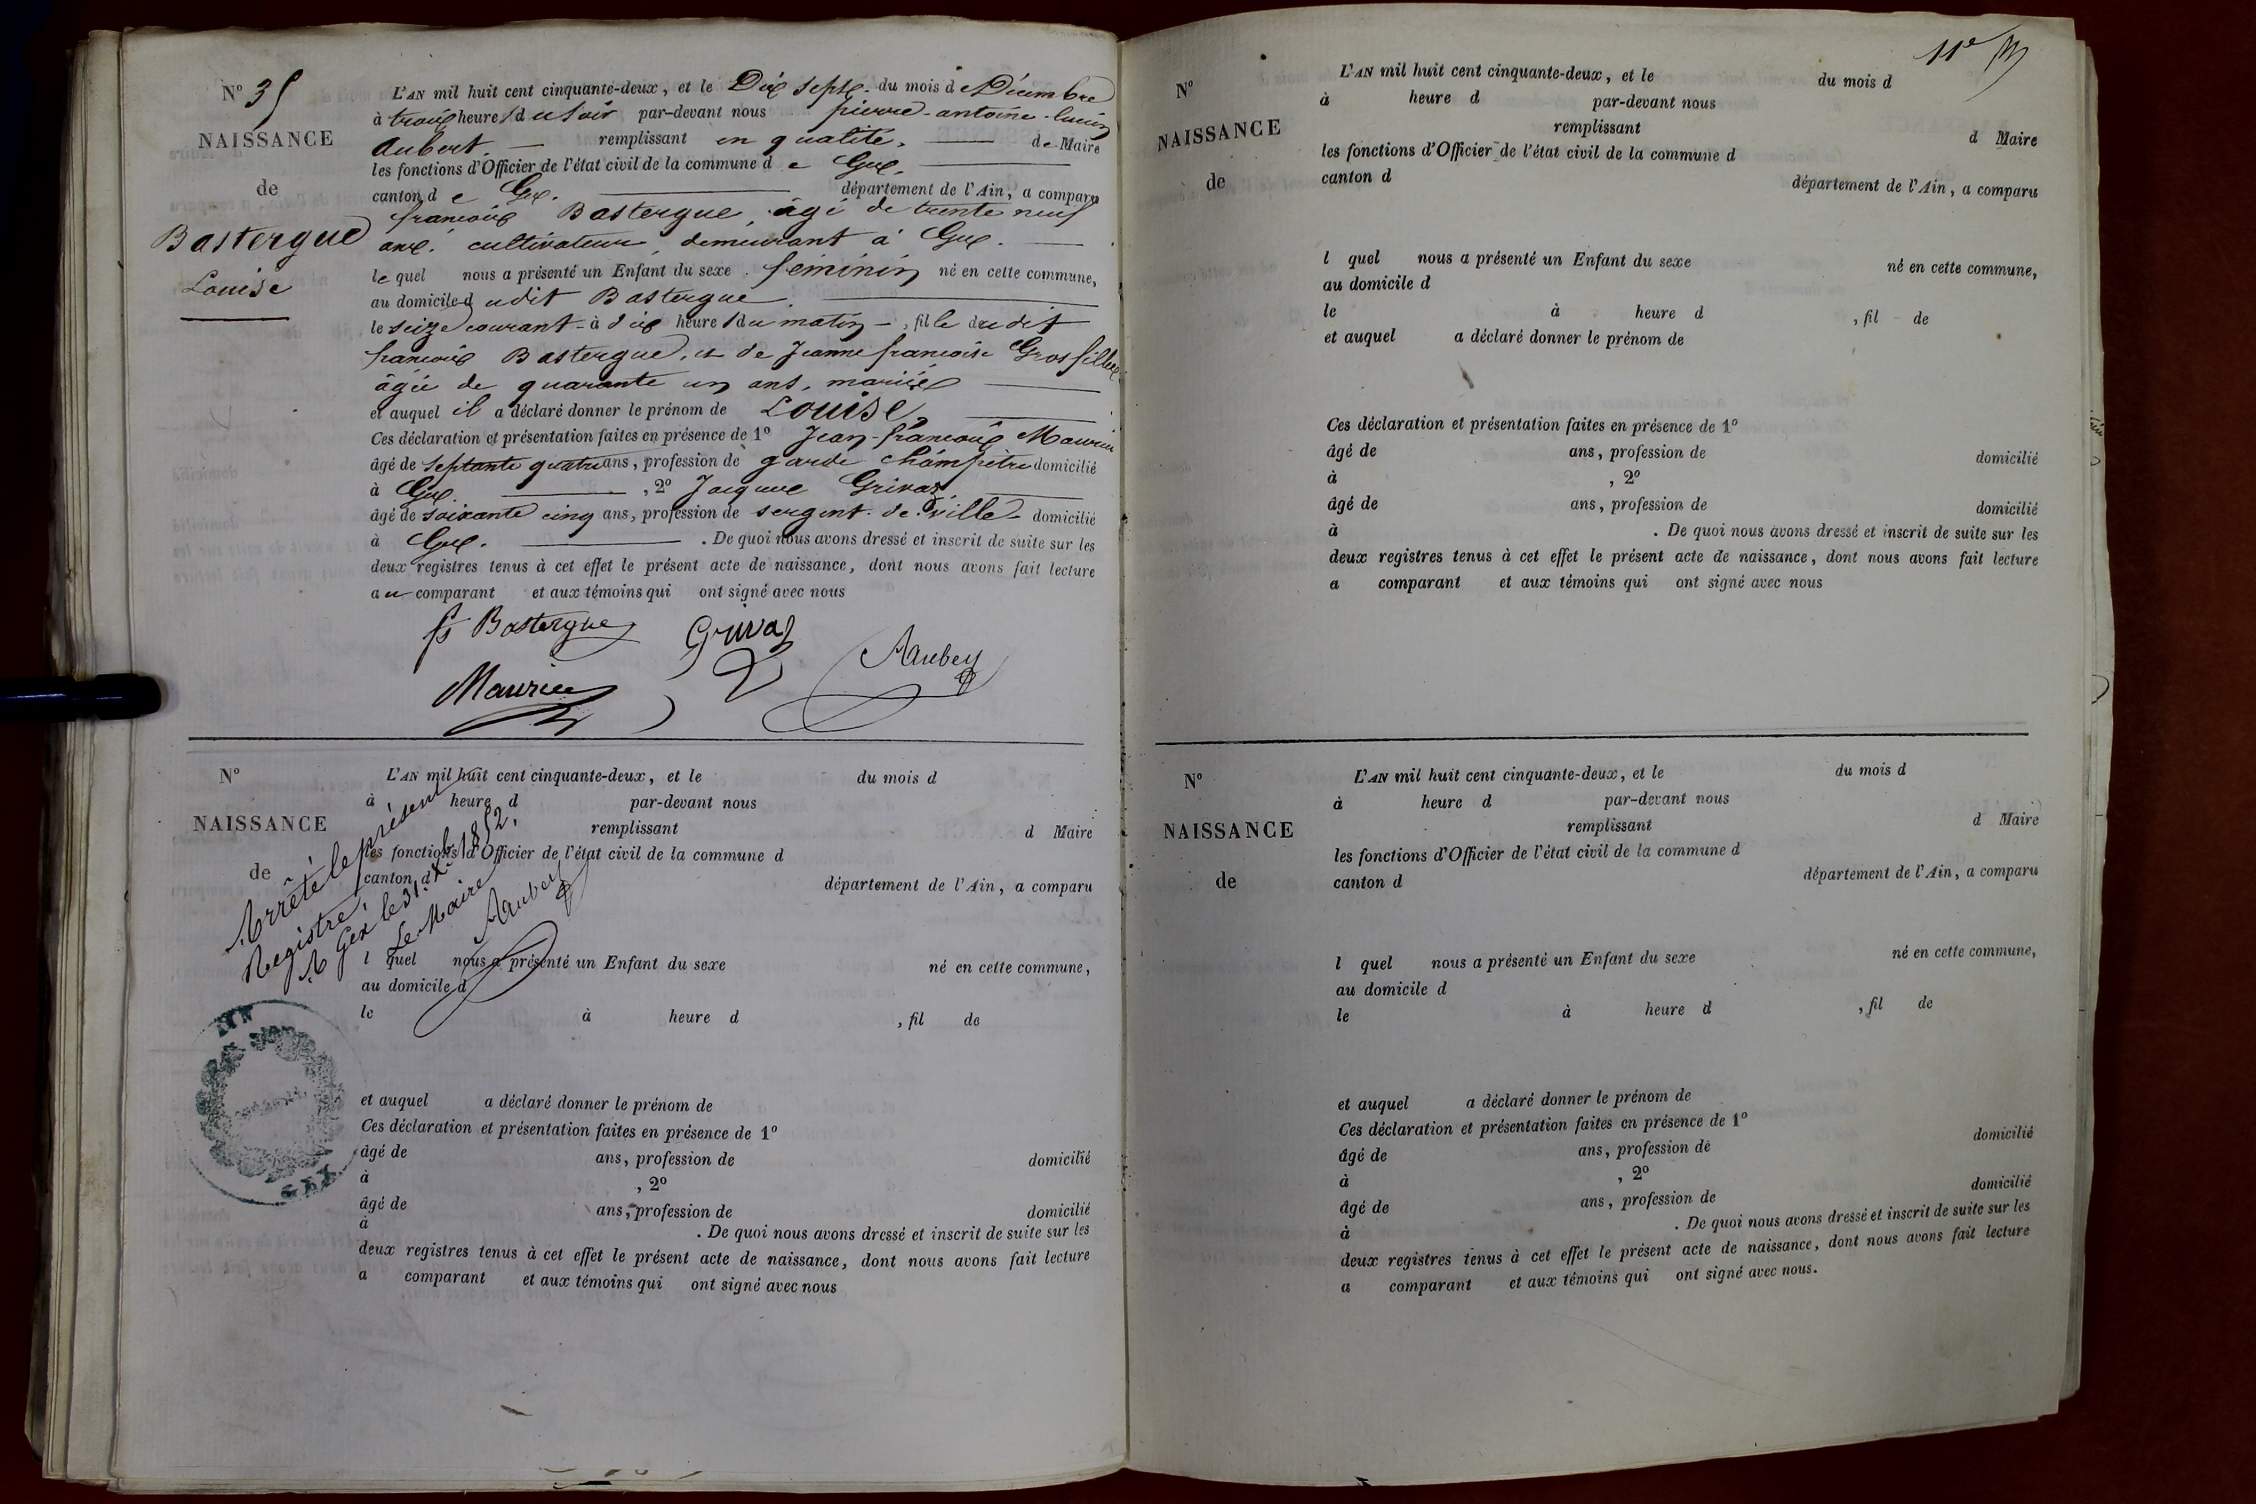 N° 35
NAISSANCE
de
Bastergue
Louise
L'AN mil huit cent cinquante-deux, et le Dix sept. du mois de Décembre
à trois heures du soir par-devant nous pierre-antoine-lucien
Aubert. remplissant en qualité, de Maire
les fonctions d'Officier de l'état civil de la commune de Gex.
canton de Gex. département de l'Ain, a comparu
francois Bastergue, âgé de trente neuf
ans. cultivateur, demeurant à Gex.
lequel nous a présenté un Enfant du sexe féminin né en cette commune,
au domicile dudit Bastergue.
le seize courant - à dix heures du matin -, fille dudit
francois Bastergue, et de Jeanne francoise Grosfillex
âgée de quarante un ans, mariés
et auquel il a déclaré donner le prénom de Louise,
Ces déclaration et présentation faites en présence de 1° Jean-francois Maurice
âgé de septante quatre ans, profession de garde champêtre domicilié
à Gex. , 2° Jacques Grivaz
âgé de soixante cinq ans, profession de sergent de ville domicilié
à Gex. . De quoi nous avons dressé et inscrit de suite sur les
deux registres tenus à cet effet le présent acte de naissance, dont nous avons fait lecture
au comparant et aux témoins qui ont signé avec nous
fs Bastergue Grivaz
Aubert
Maurice
N°
NAISSANCE
de
L'AN mil huit cent cinquante-deux, et le du mois d
à heure d par-devant nous
remplissant d Maire
les fonctions d'Officier de l'état civil de la commune d
canton d département de l'Ain, a comparu
Arrêté le présent
Registre,
A Gex le 31 Xbre 1852.
Le Maire
Aubert
l quel nous a présenté un Enfant du sexe né en cette commune,
au domicile d
le à heure d , fil de
AIN
GEX
et auquel a déclaré donner le prénom de
Ces déclaration et présentation faites en présence de 1°
âgé de ans, profession de domicilié
à , 2°
âgé de ans, profession de domicilié
à . De quoi nous avons dressé et inscrit de suite sur les
deux registres tenus à cet effet le présent acte de naissance, dont nous avons fait lecture
a comparant et aux témoins qui ont signé avec nous
11e
N°
NAISSANCE
de
L'AN mil huit cent cinquante-deux, et le du mois d
à heure d par-devant nous
remplissant d Maire
les fonctions d'Officier de l'état civil de la commune d
canton d département de l'Ain, a comparu
l quel nous a présenté un Enfant du sexe né en cette commune,
au domicile d
le à heure d , fil de
et auquel a déclaré donner le prénom de
Ces déclaration et présentation faites en présence de 1°
âgé de ans, profession de domicilié
à , 2°
âgé de ans, profession de domicilié
à . De quoi nous avons dressé et inscrit de suite sur les
deux registres tenus à cet effet le présent acte de naissance, dont nous avons fait lecture
a comparant et aux témoins qui ont signé avec nous
N°
NAISSANCE
de
L'AN mil huit cent cinquante-deux, et le du mois d
à heure d par-devant nous
remplissant d Maire
les fonctions d'Officier de l'état civil de la commune d
canton d département de l'Ain, a comparu
l quel nous a présenté un Enfant du sexe né en cette commune,
au domicile d
le à heure d , fil de
et auquel a déclaré donner le prénom de
Ces déclaration et présentation faites en présence de 1°
âgé de ans, profession de domicilié
à , 2°
âgé de ans, profession de domicilié
à . De quoi nous avons dressé et inscrit de suite sur les
deux registres tenus à cet effet le présent acte de naissance, dont nous avons fait lecture
a comparant et aux témoins qui ont signé avec nous.